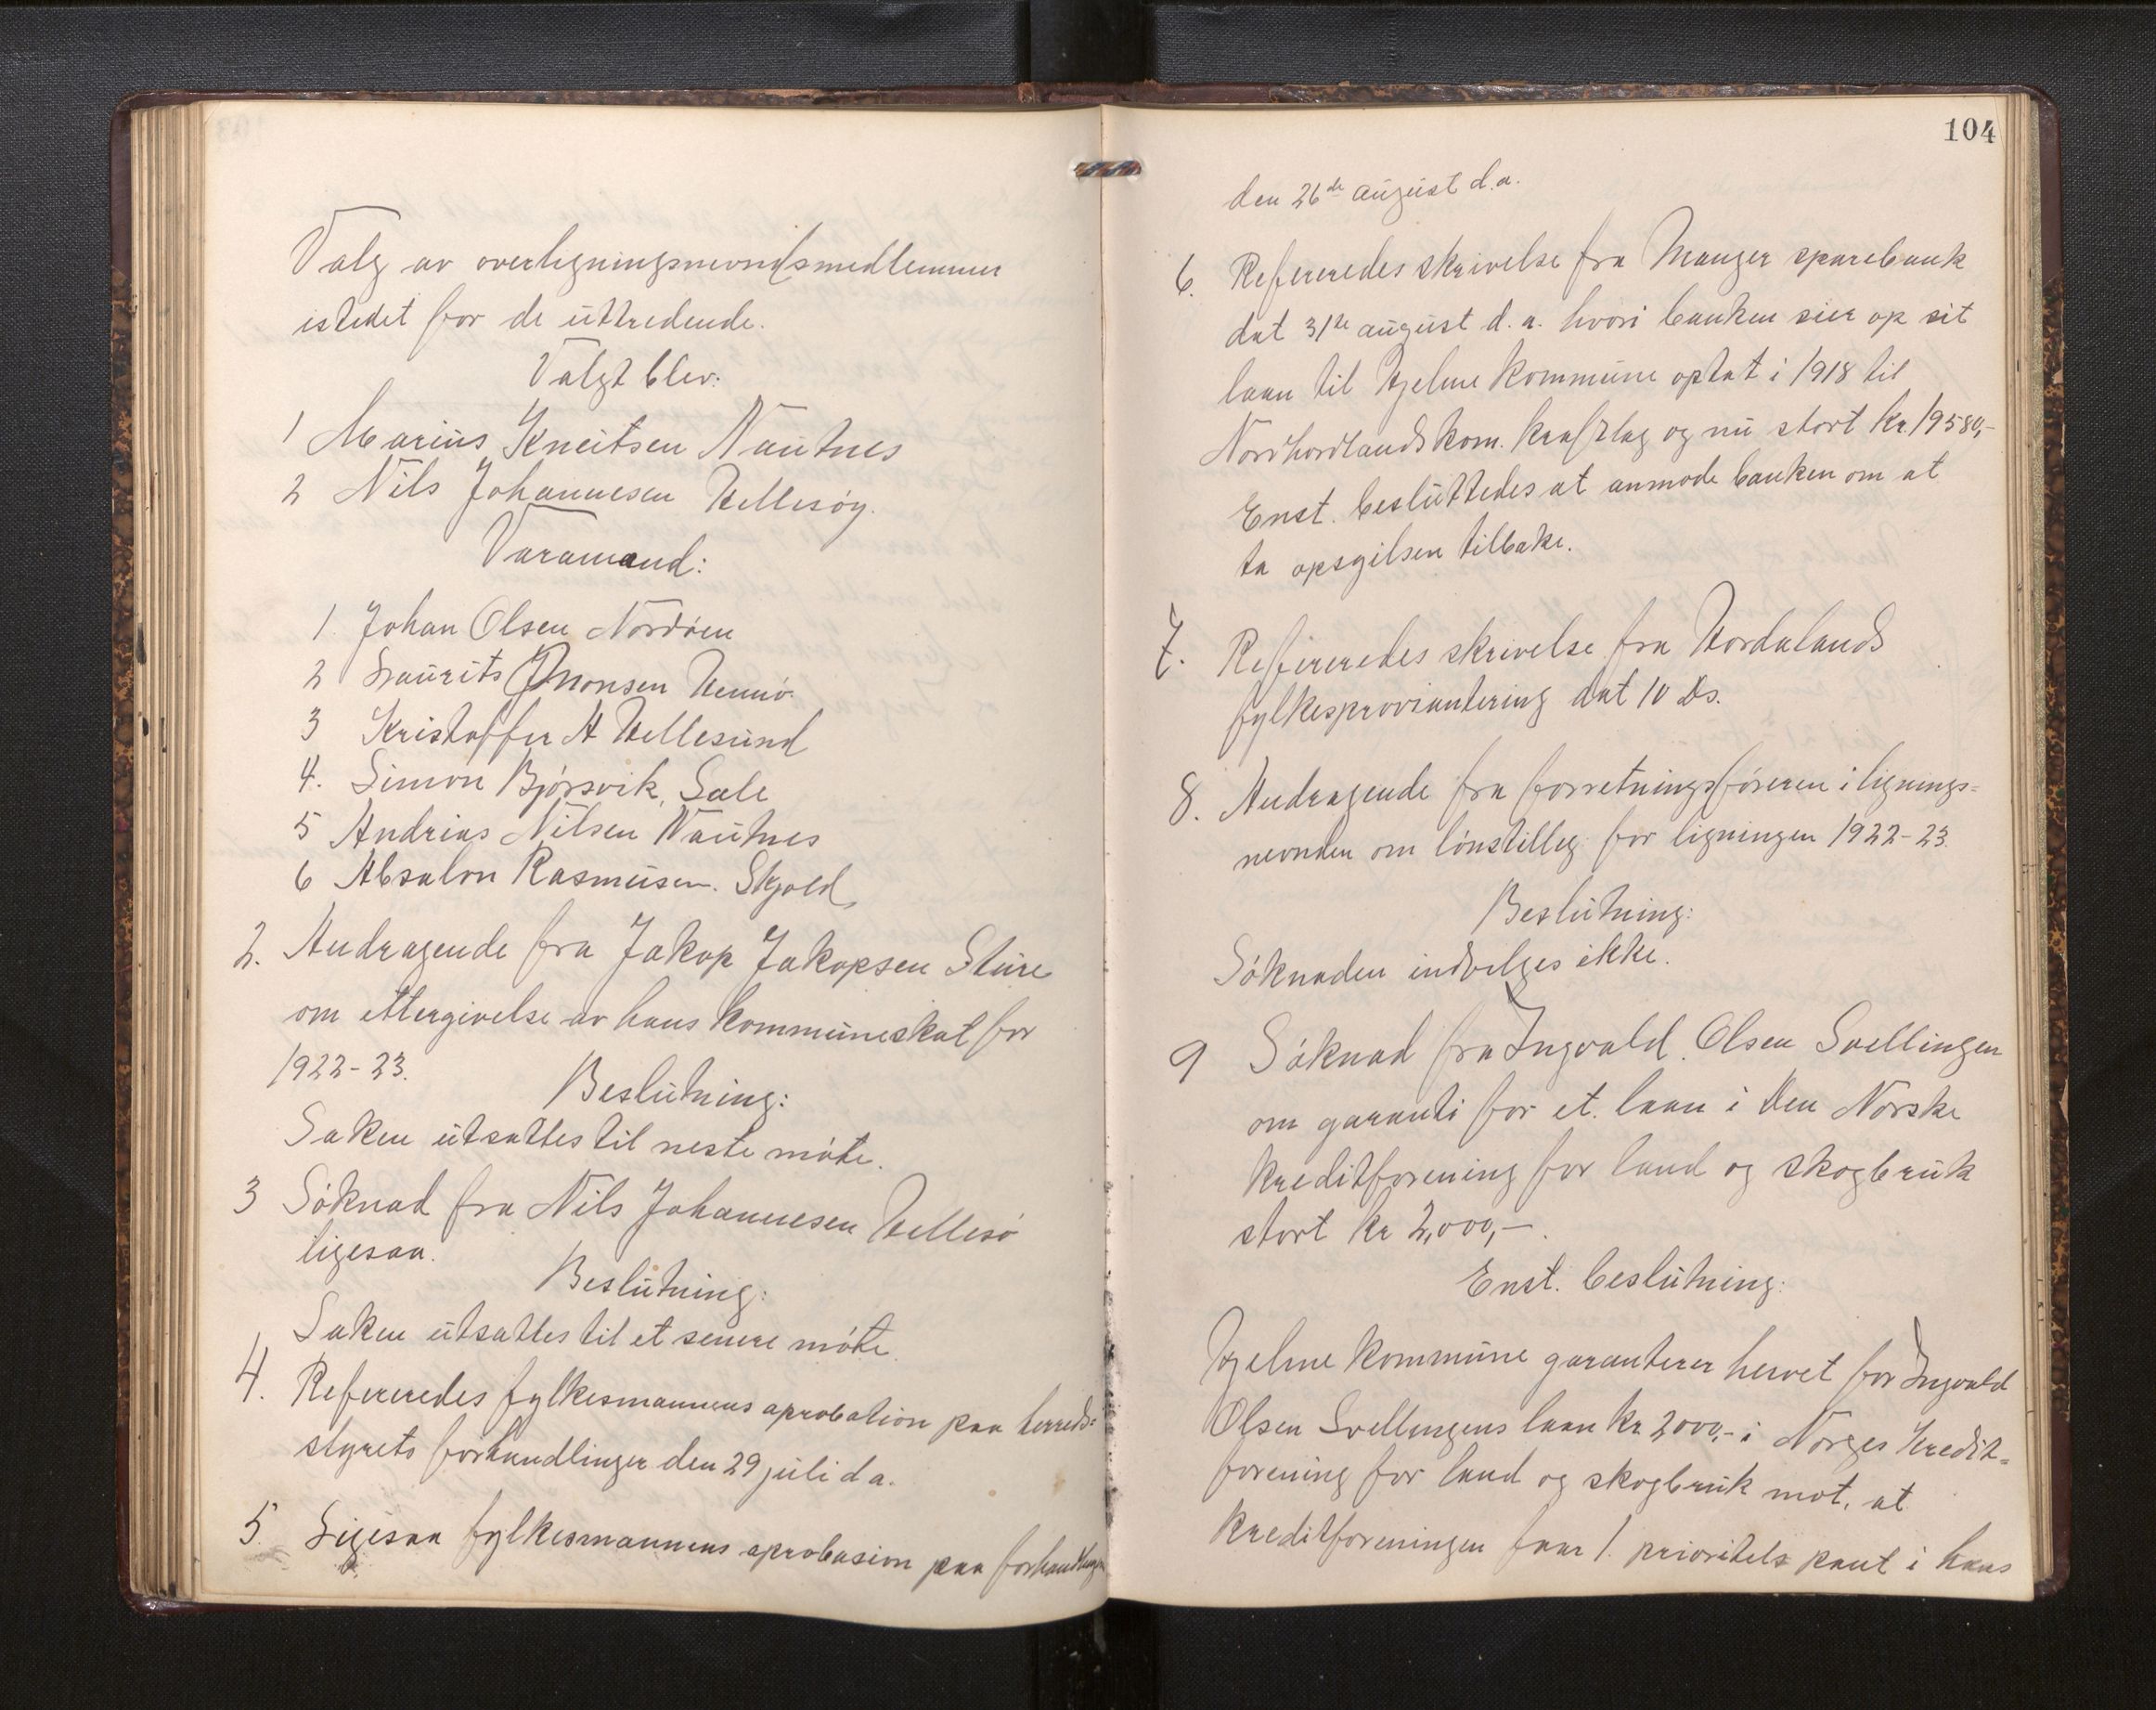 Valg av overligningsnevndsmedlemmer
istedet for de uttredende.
Valgt blev:
1 Marius Kneutsen Nautnes
2 Nils Johannesen Hellesöy.
Varamænd:
1 Johan Olsen Nordöen
2 Laurits Monsen Hennö
3 Kristoffer A Hellesund
4. Simon Bjørsvik, Sæle
5 Andrias Nilsen Nautnes
6 Absalon Rasmusen. Skjold
2. Andragende fra Jakop Jakopsen Sture
om ettergivelse av hans kommuneskat for
1922-23.
Beslutning:
Saken utsattes til neste möte.
3 Söknad fra Nils Johannesen Hellesö
ligesaa.
Beslutning:
Saken utsattes til et senere möte.
4. Refereredes fylkesmannens aprobation paa herreds=
styrets forhandlinger den 29 juli d a.
5. Ligesaa fylkesmannens aprobasion paa forhandlinger
104
den 26de august d.a.
6. Refereredes skrivelse fra Manger sparebank
dat 31te august d. a. hvori banken sier op sit
laan til Hjelme kommune optat i 1918 til
Nordhordlands kom. kraftlag og nu stort kr. 19580,-
Enst. besluttedes at anmode banken om at
ta opsgilsen tilbake.
7. Refereredes skrivelse fra Hordalands
fylkesproviantering dat 10 ds.
8. Andragende fra forretningsföreren i lignings=
nevnden om lönstilleg for ligningen 1922-23.
Beslutning:
Söknaden indvelges ikke.
9 Söknad fra Ingvald. Olsen Svellingen
om garanti for et. laan i Den Norske
kreditforening for land og skogbruk
stort kr 2,000,-.
Enst. beslutning:
Hjelme kommune garanterer hervet for Ingvald
Olsen Svellingens laan kr. 2000,- i Norges kredit=
forening for land og skogbruk mot, at
kreditforeningen faar 1. prioritets pant i hans